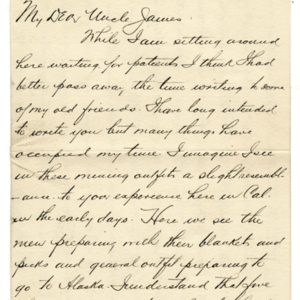 My Dear Uncle James.
While I am sitting around
here waiting for patients I think I had
better pass away the time writing to some
of my old friends. I have long intended
to write you but many things have
occupied my time. I imagine I see
in these mining outfits a slight resembl-
ance to your experience here in Cal.
in the early days. Here we see the
men preparing with their blankets and
picks and general outfit preparing to
go to Alaska. I understand that five